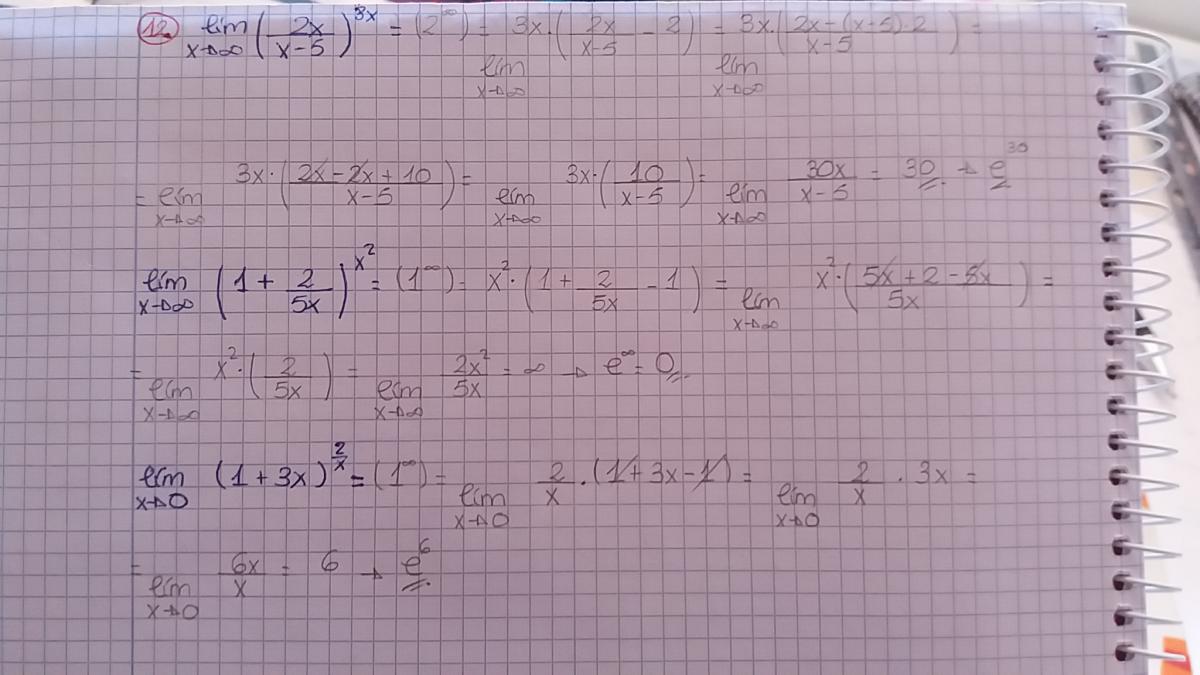 12 lím x→∞ (2x/x-5)^3x = (2^∞) = lím x→∞ 3x·(2x/x-5 - 2) = lím x→∞ 3x·(2x-(x-5)·2/x-5) =
= lím x→∞ 3x·(2x-2x+10/x-5) = lím x→∞ 3x·(10/x-5) = lím x→∞ 30x/x-5 = 30 → e^30
lím x→∞ (1 + 2/5x)^x² = (1^∞) = x²·(1 + 2/5x - 1) = lím x→∞ x²·(5x+2-5x/5x) =
= lím x→∞ x²·(2/5x) = lím x→∞ 2x²/5x = ∞ → e^∞ = 0
lím x→0 (1+3x)^2/x = (1^∞) = lím x→0 2/x·(1+3x-1) = lím x→0 2/x · 3x =
= lím x→0 6x/x = 6 → e^6